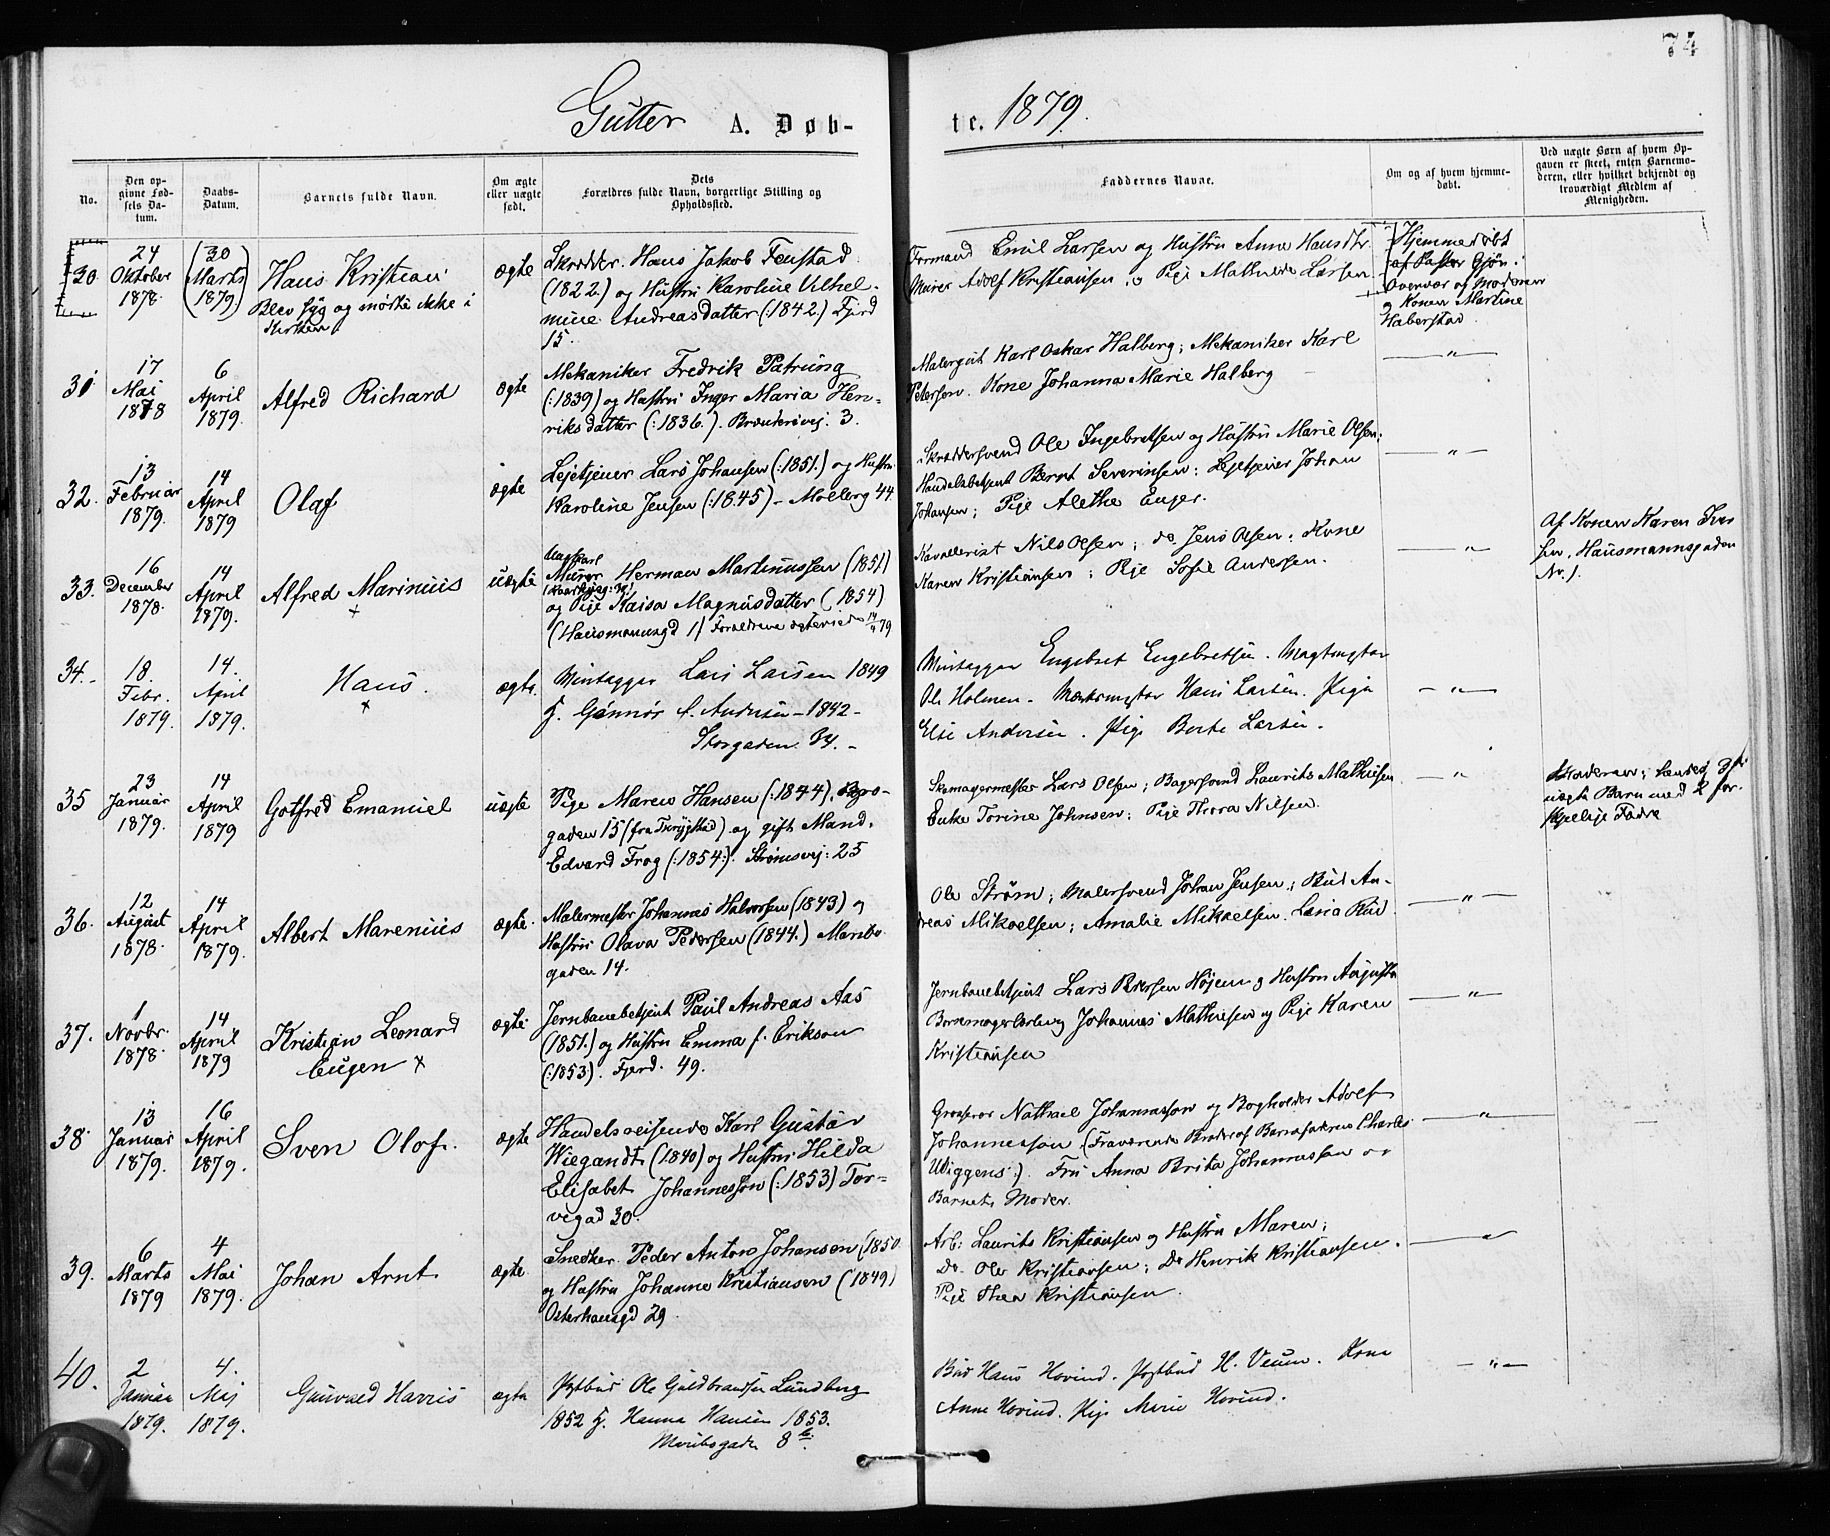 74
Gutter A. Døb- te. 1879.
No.
Den op-
givne Fød-
sels Da-
tum.
Daabs-
Datum.
Barnets fulde Navn.
Om ægte
eller uægte
født.
Dets
Forældres fulde Navn, borgerlige Stilling og
Opholdssted.
Faddernes Navne.
Om og af hvem hjemme-
døbt.
Ved uægte Børn af hvem Op-
gaven er skeet, enten Barnemo-
deren, eller hvilket bekjendt og
troværdigt Medlem af
Menigheden.
30
24
Oktober
1878.
(30
Marts
1879)
Hans Kristian
Blev syg og mødte ikke i
Kirken
ægte
Skrædder. Hans Jakob Fenstad
(1822.) og Hustru Karoline Vilhel-
mine Andreasdatter (:1842.) Fjerd
15.
Formand Emil Larsen og Hustru Anne Hansdtr
Murer Adolf Kristiansen, o Pige Mathilde Larsen
Hjemmedøbt
af Pastor Gjør. i
Overvær af Moderen
og Konen Martine
Haberstad.
31
17
Mai
1878
6
April
1879.
Alfred Richard
ægte
Mekaniker Fredrik Patrung
(:1839) og Hustru Inger Maria Hen-
riksdatter (:1836.). 3.
Malergut Karl Oskar Halberg; Mekaniker Karl
Petersen. Kone Johanna Marie Halberg
— „ —
32.
13
Februar
1879.
14
April
1879
Olaf
ægte
Lejetjener Lars Johansen (:1851.) og Hustru
Karoline Jensen (:1845) – Møllerg 44.
Skræddersvend Ole Ingebretsen og Hustru Marie Olsen;
Handelsbetjent Bernt Severinsen: Lejetjener Johan
Johansen; Pige Alethe Enger.
— „ —
33.
16
December
1878.
14
April
1879.
Alfred Marinius
+
uægte
Ungkarl
Murer Herman Martinussen (1851)
og Pige Kaisa Magnusdatter (1854)
(Hausmannsgd 1) Forældrene ægteviede 14/4 79
Kavallerist Nils Olsen; do Jens Olsen. Kone
Karen Kristiansen; Pige Sofie Andersen.
— „ —
Af Konen Karen Iver
sen, Hausmannsgaden
Nr. 1.
34.-
18.
Febr.
1879.
14.
April
1879.
Hans.
+
ægte.
Lars Larsen 1849
H. Gunnor f. Andersen – 1842 –
Storgaden. 34. –
Engebret Engebretsen.
Ole Holmen. Hans Larsen. Pige
Else Andersen. Pige Berte Larsen.
— „ —
35
23
Januar
1879.
14
April
1879
Gotfred Emanuel
uægte
Pige Maren Hansen (:1844),
gaden 15 (fra Trøgstad) og gift Mand.
Edvard Frog (:1854:). Strømsvej: 25
Skomagermester Lars Olsen; Bagersvend Laurits Mathisen
Enke Torine Johnsen; Pige Thora Nilsen.
— „ —
Moderen; hendes 3die
uægte Barn med 2 for-
skjellige Fædre
36.
12
August
1878.
14
April
1879.
Albert Marenius
ægte.
Malermester Johannes Halvorsen (1843) og
Hustru Olava Pedersen (1844.) Maribo
gaden 14.
Ole Strøm; Malersvend Johan Jensen; Bud An-
dreas Mikaelsen; Amalie Mikaelsen.
— „ —
37.
1
Novbr.
1878.
14
April
1879
Kristian Leonard
Eugen +
ægte
Jernbanebetjent Paul Andreas Aas
(1851.) og Hustru Emma f. Erikson
(:1853). Fjerd. 49.
Jernbanebetjent Lars Petersen Højem og Hustru Augusta
Johannes Mathisen og Pige Karen
Kristiansen
— „ —
38.
13
Januar
1879.
16
April
1879.
Sven Olof.
ægte
Handelsreisende Karl Gustav
Wiegandt (1840) og Hustru Hilda
Elisabet Johannesson (:1853) Tor-
vegad 30.
Grosserer Nathael Johannesson og Bogholder Adolf
Johannesson. (Fraværende Broder af Barnefaderen Charles
Wiggens). Fru Anna Brita Johannesson og
Barnets Moder.
— „ —
39.
6
Marts
1879
4
Mai
1879.
Johan Arnt
ægte.
Snedker. Peder Anton Johansen (1850
og Hustru Johanne Kristiansen (1849)
Osterhausgd 29.
Arb: Laurits Kristiansen og Hustru Maren;
Do. Ole Kristiansen; Do Henrik Kristiansen.
Pige Thea Kristiansen.
— „ —
40.
2
Januar
1879.
4.
Maj
1879.
Gunvald Harris
ægte
Postbud Ole Guldbrandsen Lundberg
1852 H. Hanna Hansen 1853.
Maribogaden 8 b.
Bud Hans Hovind. Postbud H. Veum. Kone
Anne Hovind. Pige Marie Hovind.
— „ —